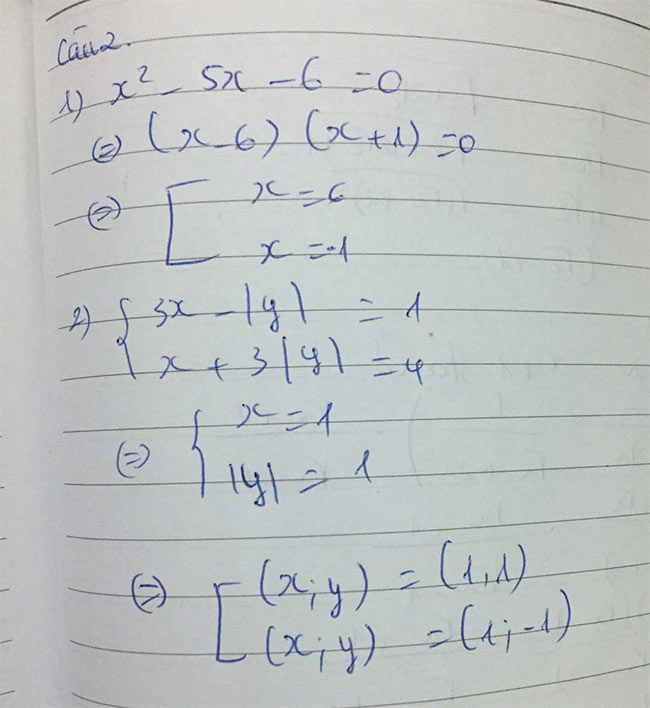 Câu 2.
1) x² - 5x - 6 = 0
⇔ (x - 6) (x + 1) = 0
⇔ [ x = 6
x = -1
2) { 3x - |y| = 1
x + 3|y| = 4
⇔ { x = 1
|y| = 1
⇔ [ (x; y) = (1, 1)
(x; y) = (1; -1)